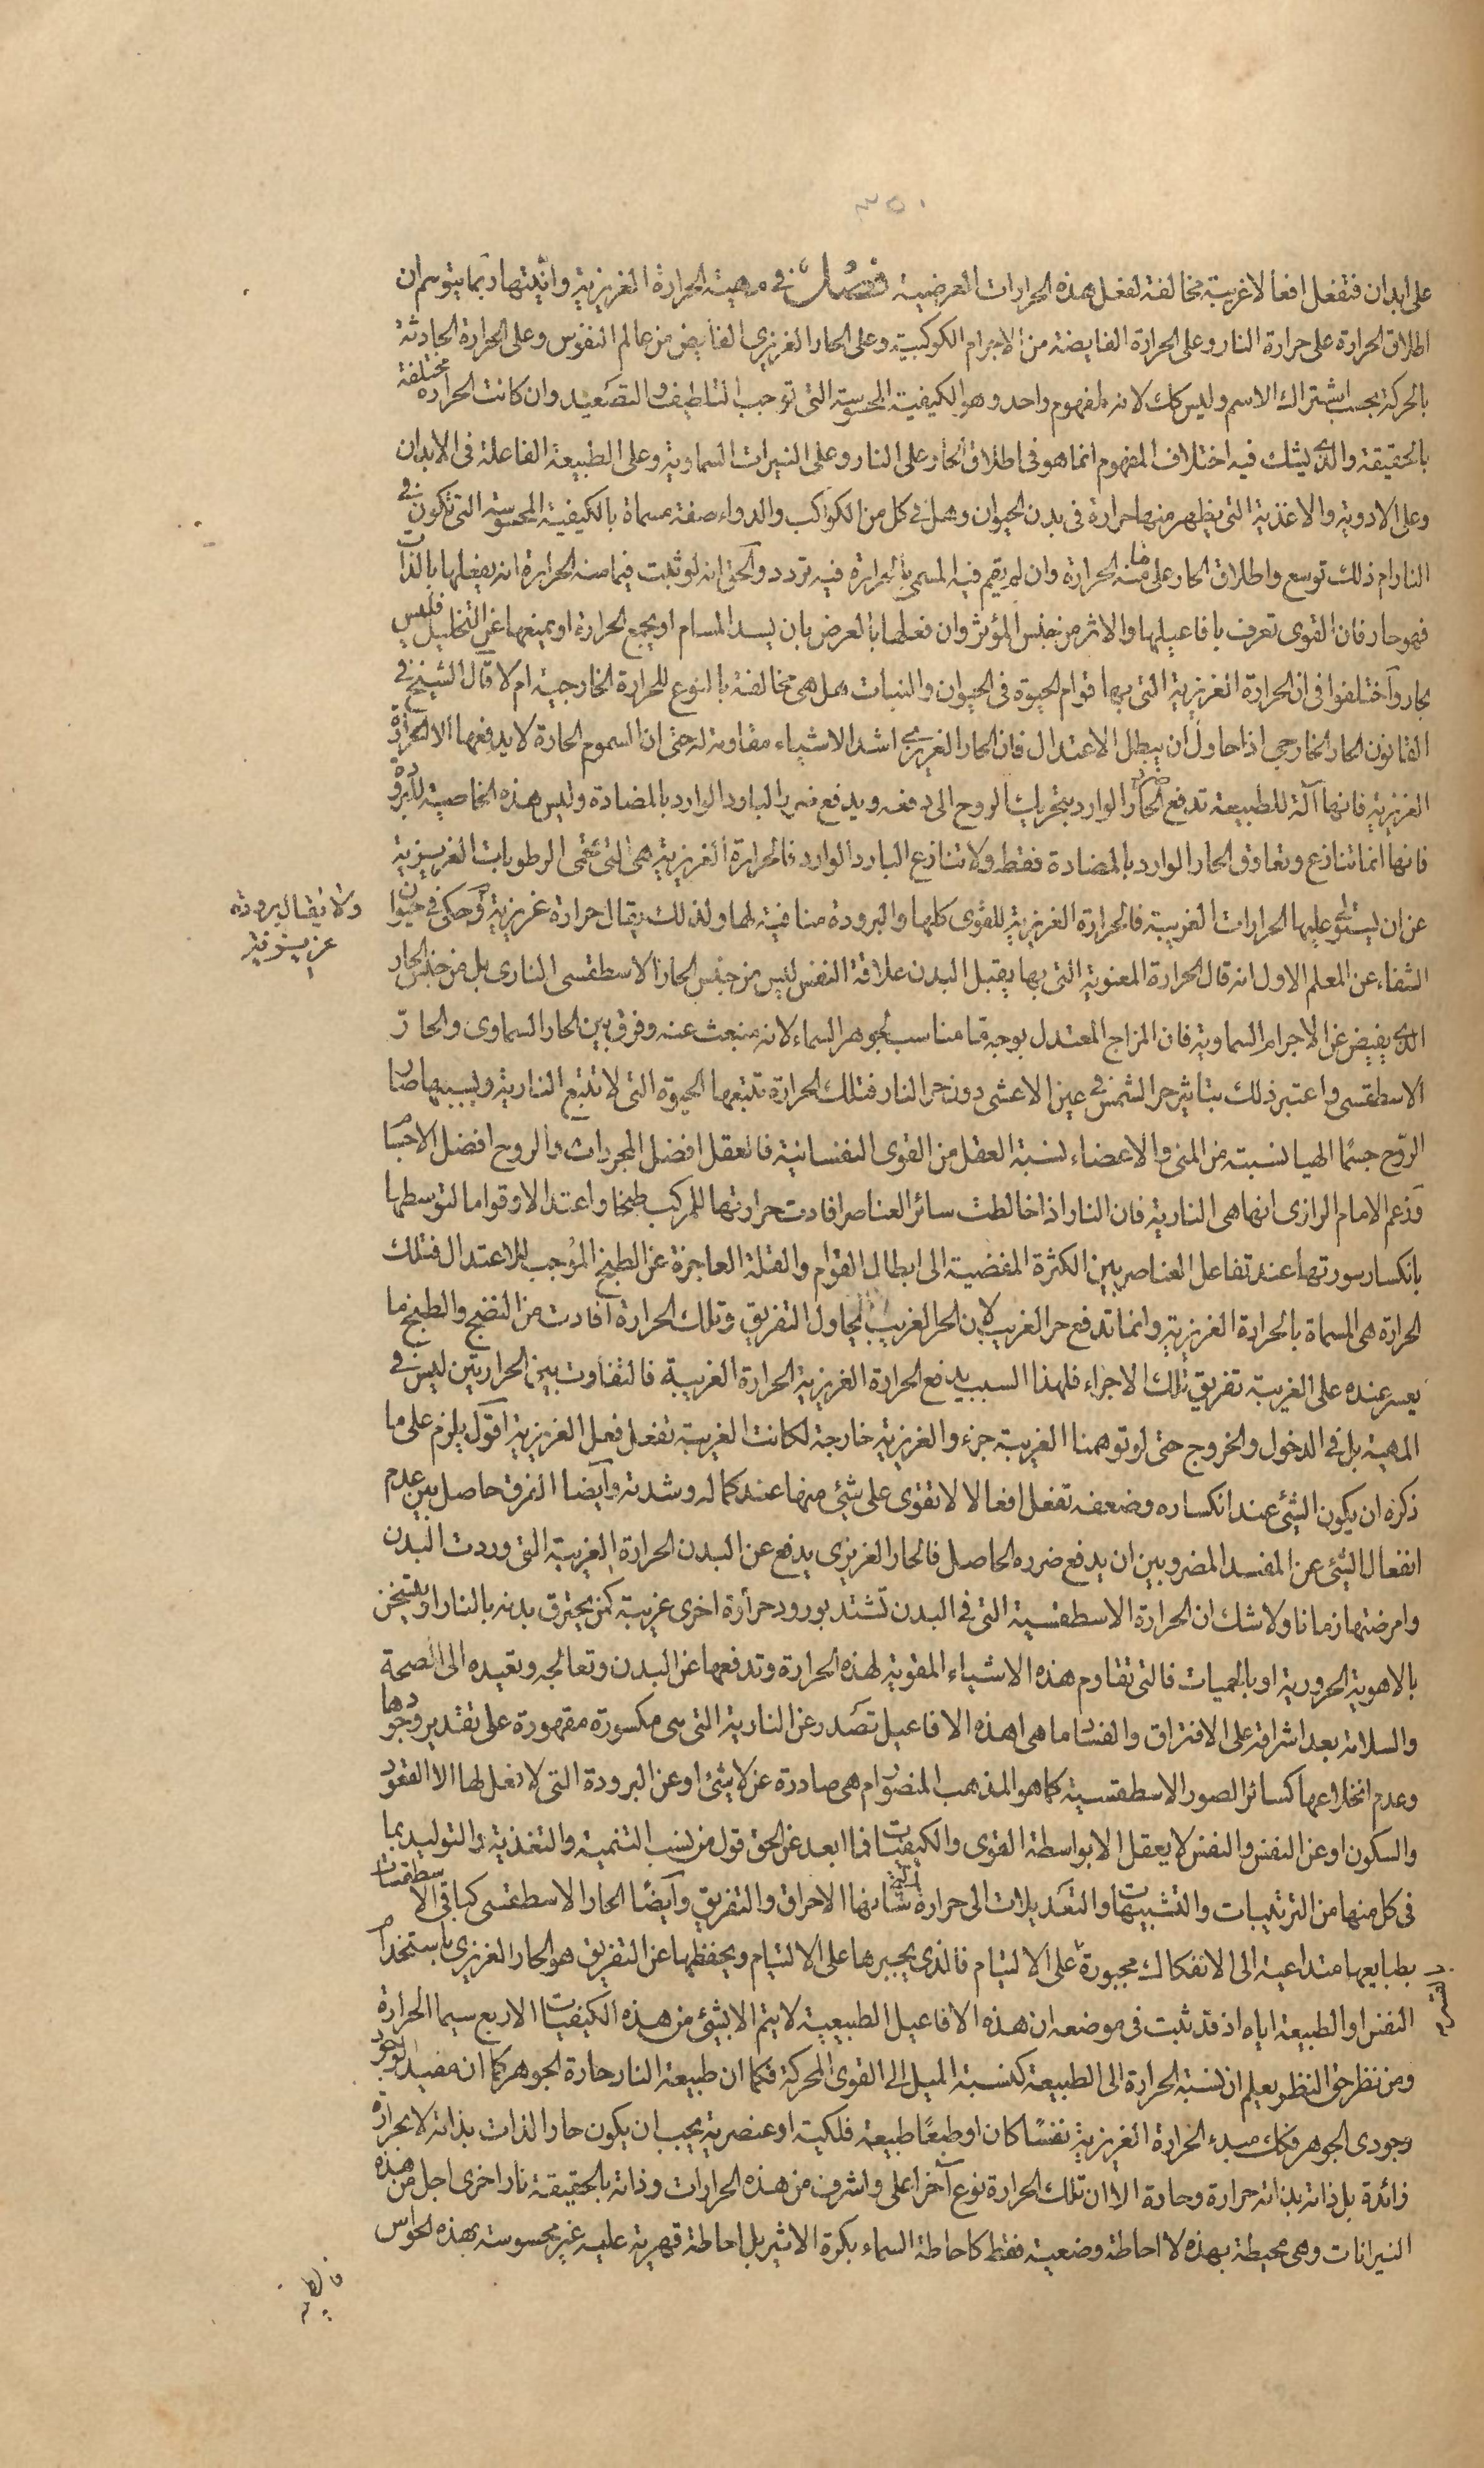 ٣٥٠
على ابدان فتفعل افعالا غريبة مخالفة لفعل هذه الحرارات العرضية فصل في مهية الحرارة الغريزية وانيتها ربما يتوهم ان
اطلاق الحرارة على حرارة النار وعلى الحرارة الفايضة من الاجرام الكوكبية وعلى الحار الغريزى الفايض من عالم النفوس وعلى الحرارة الحادثة
بالحركة بحسب اشتراك الاسم وليس كك لانه لمفهوم واحد وهو الكيفية المحسوسة التى توجب التلطيف والتصعيد وان كانت الحرارة مختلفة
بالحقيقة والذى يشك فيه اختلاف المفهوم انما هو فى اطلاق الحار على النار وعلى النيرات السماوية وعلى الطبيعة الفاعلة فى الابدان
وعلى الادوية والاغذية التى يظهر منها حرارة فى بدن الحيوان وهل في كل من الكواكب والدواء صفة مسماة بالكيفية المحسوسة التى تكون في
النار ام ذلك توسع واطلاق الحار على ما منه الحرارة وان لم يقم فيه المسمى بالحرارة فيه تردد والحق انه لو ثبت فيما منه الحرارة انه يفعلها بالذات
فهو حار فان القوى تعرف بافاعيلها والاثر من جنس المؤثر وان فعلها بالعرض بان يسد المسام او يجمع الحرارة او يمنعها عن التحليل فليس
بحار واختلفوا فى ان الحرارة الغريزية التى بها قوام الحيوة فى الحيوان والنبات هل هى مخالفة بالنوع للحرارة الخارجية ام لا قال الشيخ في
القانون الحار الخارجى اذا حاول ان يبطل الاعتدال فان الحار الغريزى اشد الاشياء مقاومة له حتى ان السموم الحارة لا يدفعها الا الحرارة
الغريزية فانها آلة للطبيعة تدفع ضرر الحار الوارد بتحريك الروح الى دفعه ويدفع ضرر البارد الوارد بالمضادة وليس هذه الخاصية للبرودة
فانها انما تنازع وتعاوق الحار الوارد بالمضادة فقط ولا تنازع البارد الوارد فالحرارة الغريزية هى التى تحمى الرطوبات الغريزية
عن ان يستولى عليها الحرارات الغريبة فالحرارة الغريزية للقوى كلها والبرودة منافية لها ولذلك يقال حرارة غريزية وحكى في حيوان
ولا يقال برودة
غريزية
الشفاء عن المعلم الاول انه قال الحرارة المعنوية التى بها يقبل البدن علاقة النفس ليس من جنس الحار الاسطقسى النارى بل من جنس الحار
الذى يفيض عن الاجرام السماوية فان المزاج المعتدل بوجه ما مناسب لجوهر السماء لانه منبعث عنه وفرق بين الحار السماوى والحار
الاسطقسى واعتبر ذلك بتاثير حر الشمس في عين الاعشى دون حر النار فتلك الحرارة تتبعها الحيوة التى لا تتبع النارية وبسببها صار
الروح جسما الهيا نسبته من المنى والاعضاء نسبة العقل من القوى النفسانية فالعقل افضل المجردات والروح افضل الاجسام
وزعم الامام الرازى انها هى النارية فان النار اذا خالطت سائر العناصر افادت حرارتها للمركب طبخا واعتدالا وقواما لتوسطها
بانكسار سورتها عند تفاعل العناصر بين الكثرة المفضية الى ابطال القوام والقلة العاجزة عن الطبخ الموجب للاعتدال فتلك
الحرارة هى المسماة بالحرارة الغريزية وانما تدفع حر الغريب لان الحر الغريب يحاول التفريق وتلك الحرارة افادت من النضج والطبخ ما
يعسر عنده على الغريبة تفريق تلك الاجزاء فلهذا السبب يدفع الحرارة الغريزية الحرارة الغريبة فالتفاوت بين الحرارتين ليس في
المهية بل فى الدخول والخروج حتى لو توهمنا الغريبة جزء والغريزية خارجة لكانت الغريبة تفعل فعل الغريزية اقول يلزم على ما
ذكره ان يكون الشئ عند انكساره وضعفه تفعل افعالا لا تقوى على شئ منها عند كماله وشدته وايضا الفرق حاصل بين عدم
انفعال الشئ عن المفسد المضر وبين ان يدفع ضرره الحاصل فالحار الغريزى يدفع عن البدن الحرارة الغريبة التى وردت البدن
وامرضتها زمانا ولا شك ان الحرارة الاسطقسية التى فى البدن تشتد بورود حرارة اخرى غريبة كمن يحترق بدنه بالنار او يتسخن
بالاهوية الحرورية او بالحميات فالتى تقاوم هذه الاشياء المقوية لهذه الحرارة وتدفعها عن البدن وتعالجه وتعيده الى الصحة
والسلامة بعد اشرافه على الافتراق والفساد ما هى اهذه الافاعيل تصدر عن النارية التى هى مكسورة مقهورة على تقدير وجودها
وعدم انخلاعها كسائر الصور الاسطقسية كما هو المذهب المنصور ام هى صادرة عن لا شئ او عن البرودة التى لا فعل لها الا القعود
والسكون او عن النفس والنفس لا يعقل الا بواسطة القوى والكيفيات فما ابعد عن الحق قول من نسب التنمية والتغذية والتوليد بما
فى كل منها من الترتيبات والتشبيهات والتعديلات الى حرارة نارية شانها الاحراق والتفريق وايضًا الحار الاسطقسى كباقى الاسطقسات
بطبايعها متداعية الى الانفكاك مجبورة على الالتيام فالذى يجبرها على الالتيام ويحفظها عن التفريق هو الحار الغريزى باستخدام
النفس او الطبيعة اياه اذ قد ثبت فى موضعه ان هذه الافاعيل الطبيعية لا يتم الا بشئ من هذه الكيفيات الاربع سيما الحرارة
ومن نظر حق النظر يعلم ان نسبة الحرارة الى الطبيعة كنسبة الميل الى القوى المحركة فكما ان طبيعة النار حارة الجوهر كما ان مفيد الوجود
وجودى الجوهر فكك مبدء الحرارة الغريزية نفسًا كان او طبعًا طبيعة فلكية او عنصرية يجب ان يكون حار الذات بذاته لا بحرارة
زائدة بل ذاته بذاته حرارة وحارة الا ان تلك الحرارة نوع آخر اعلى واشرف من هذه الحرارات وذاته بالحقيقة نار اخرى اجل من هذه
النيرانات وهى محيطة بهذه لا احاطة وضعية فقط كاحاطة السماء بكرة الاثير بل احاطة قهرية علية غير محسوسة بهذه الحواس